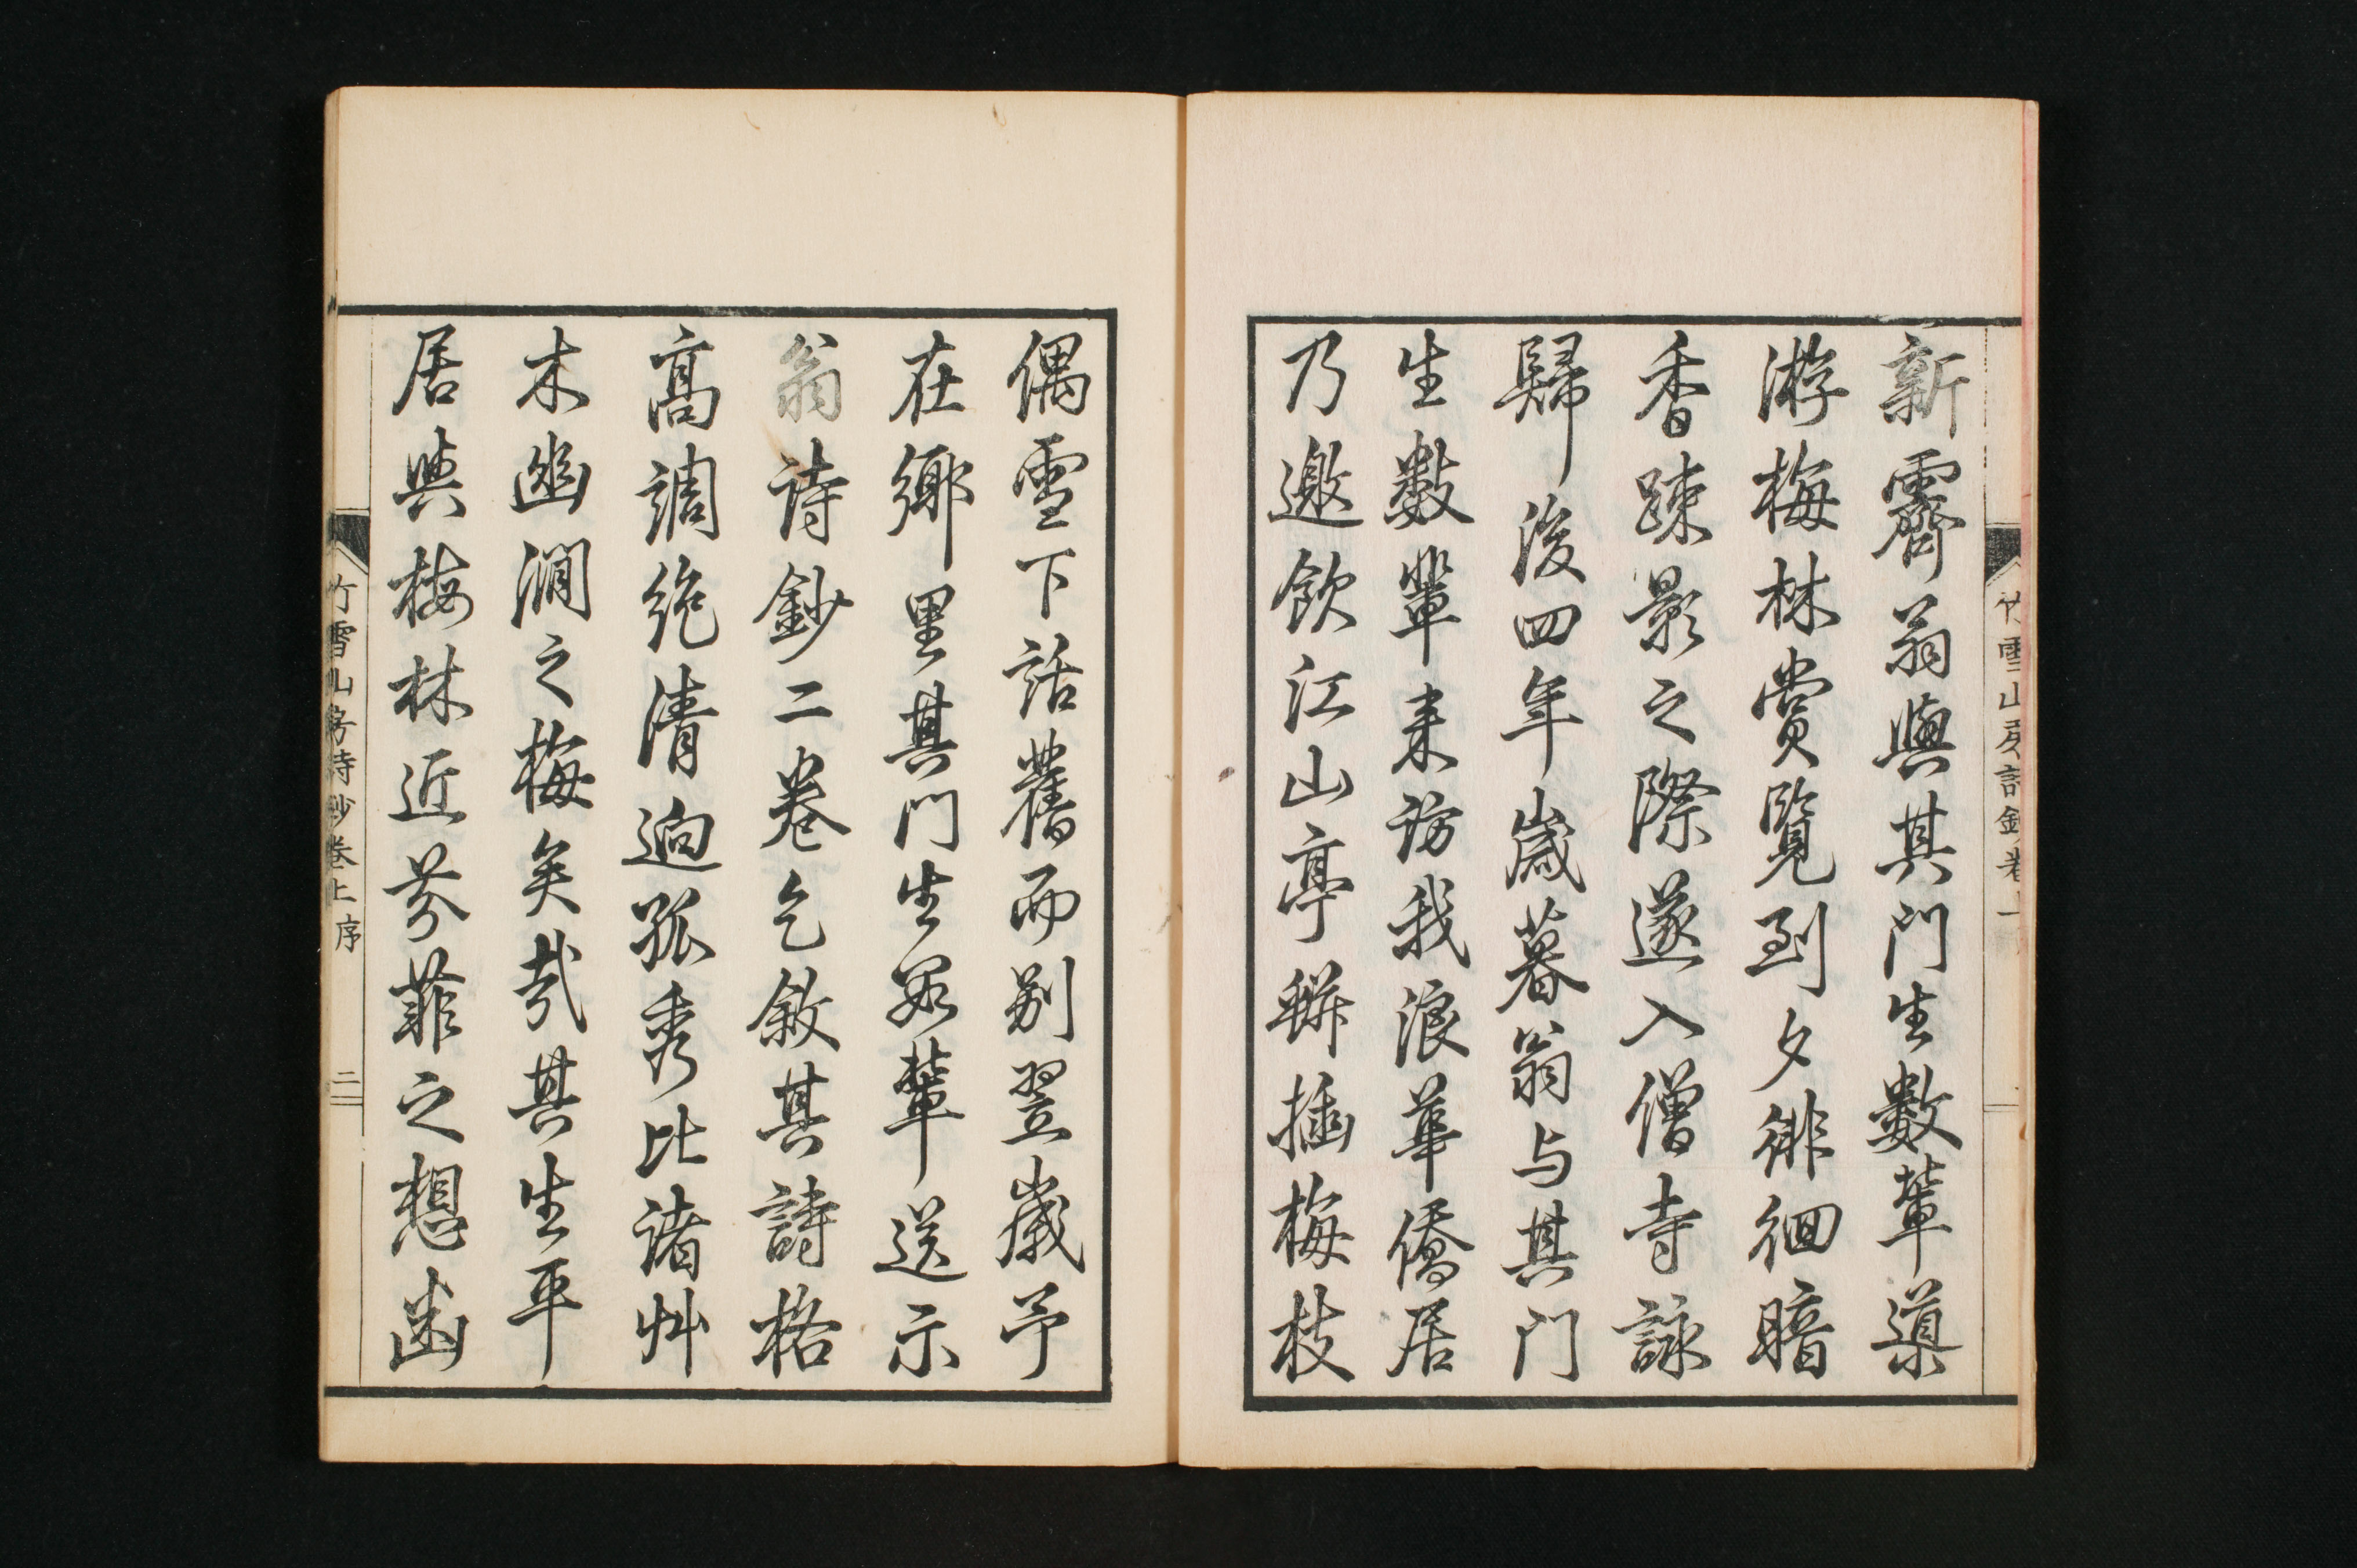 新霽翁與其門生數輩導
游梅林賞覽到夕徘徊暗
香疎影之際遂入僧寺詠
歸後四年歲暮翁与其門
生數輩来訪我浪華僑居
乃邀飲江山亭缾插梅枝
竹雪山房詩鈔卷上
偶雪下話舊而別翌歲予
在鄉里其門生某輩送示
翁詩鈔二卷乞敘其詩格
高調絶清迥孤秀比諸艸
木幽澗之梅矣哉其生平
居與梅林近芬菲之想幽
竹雪山房詩鈔卷上序
二